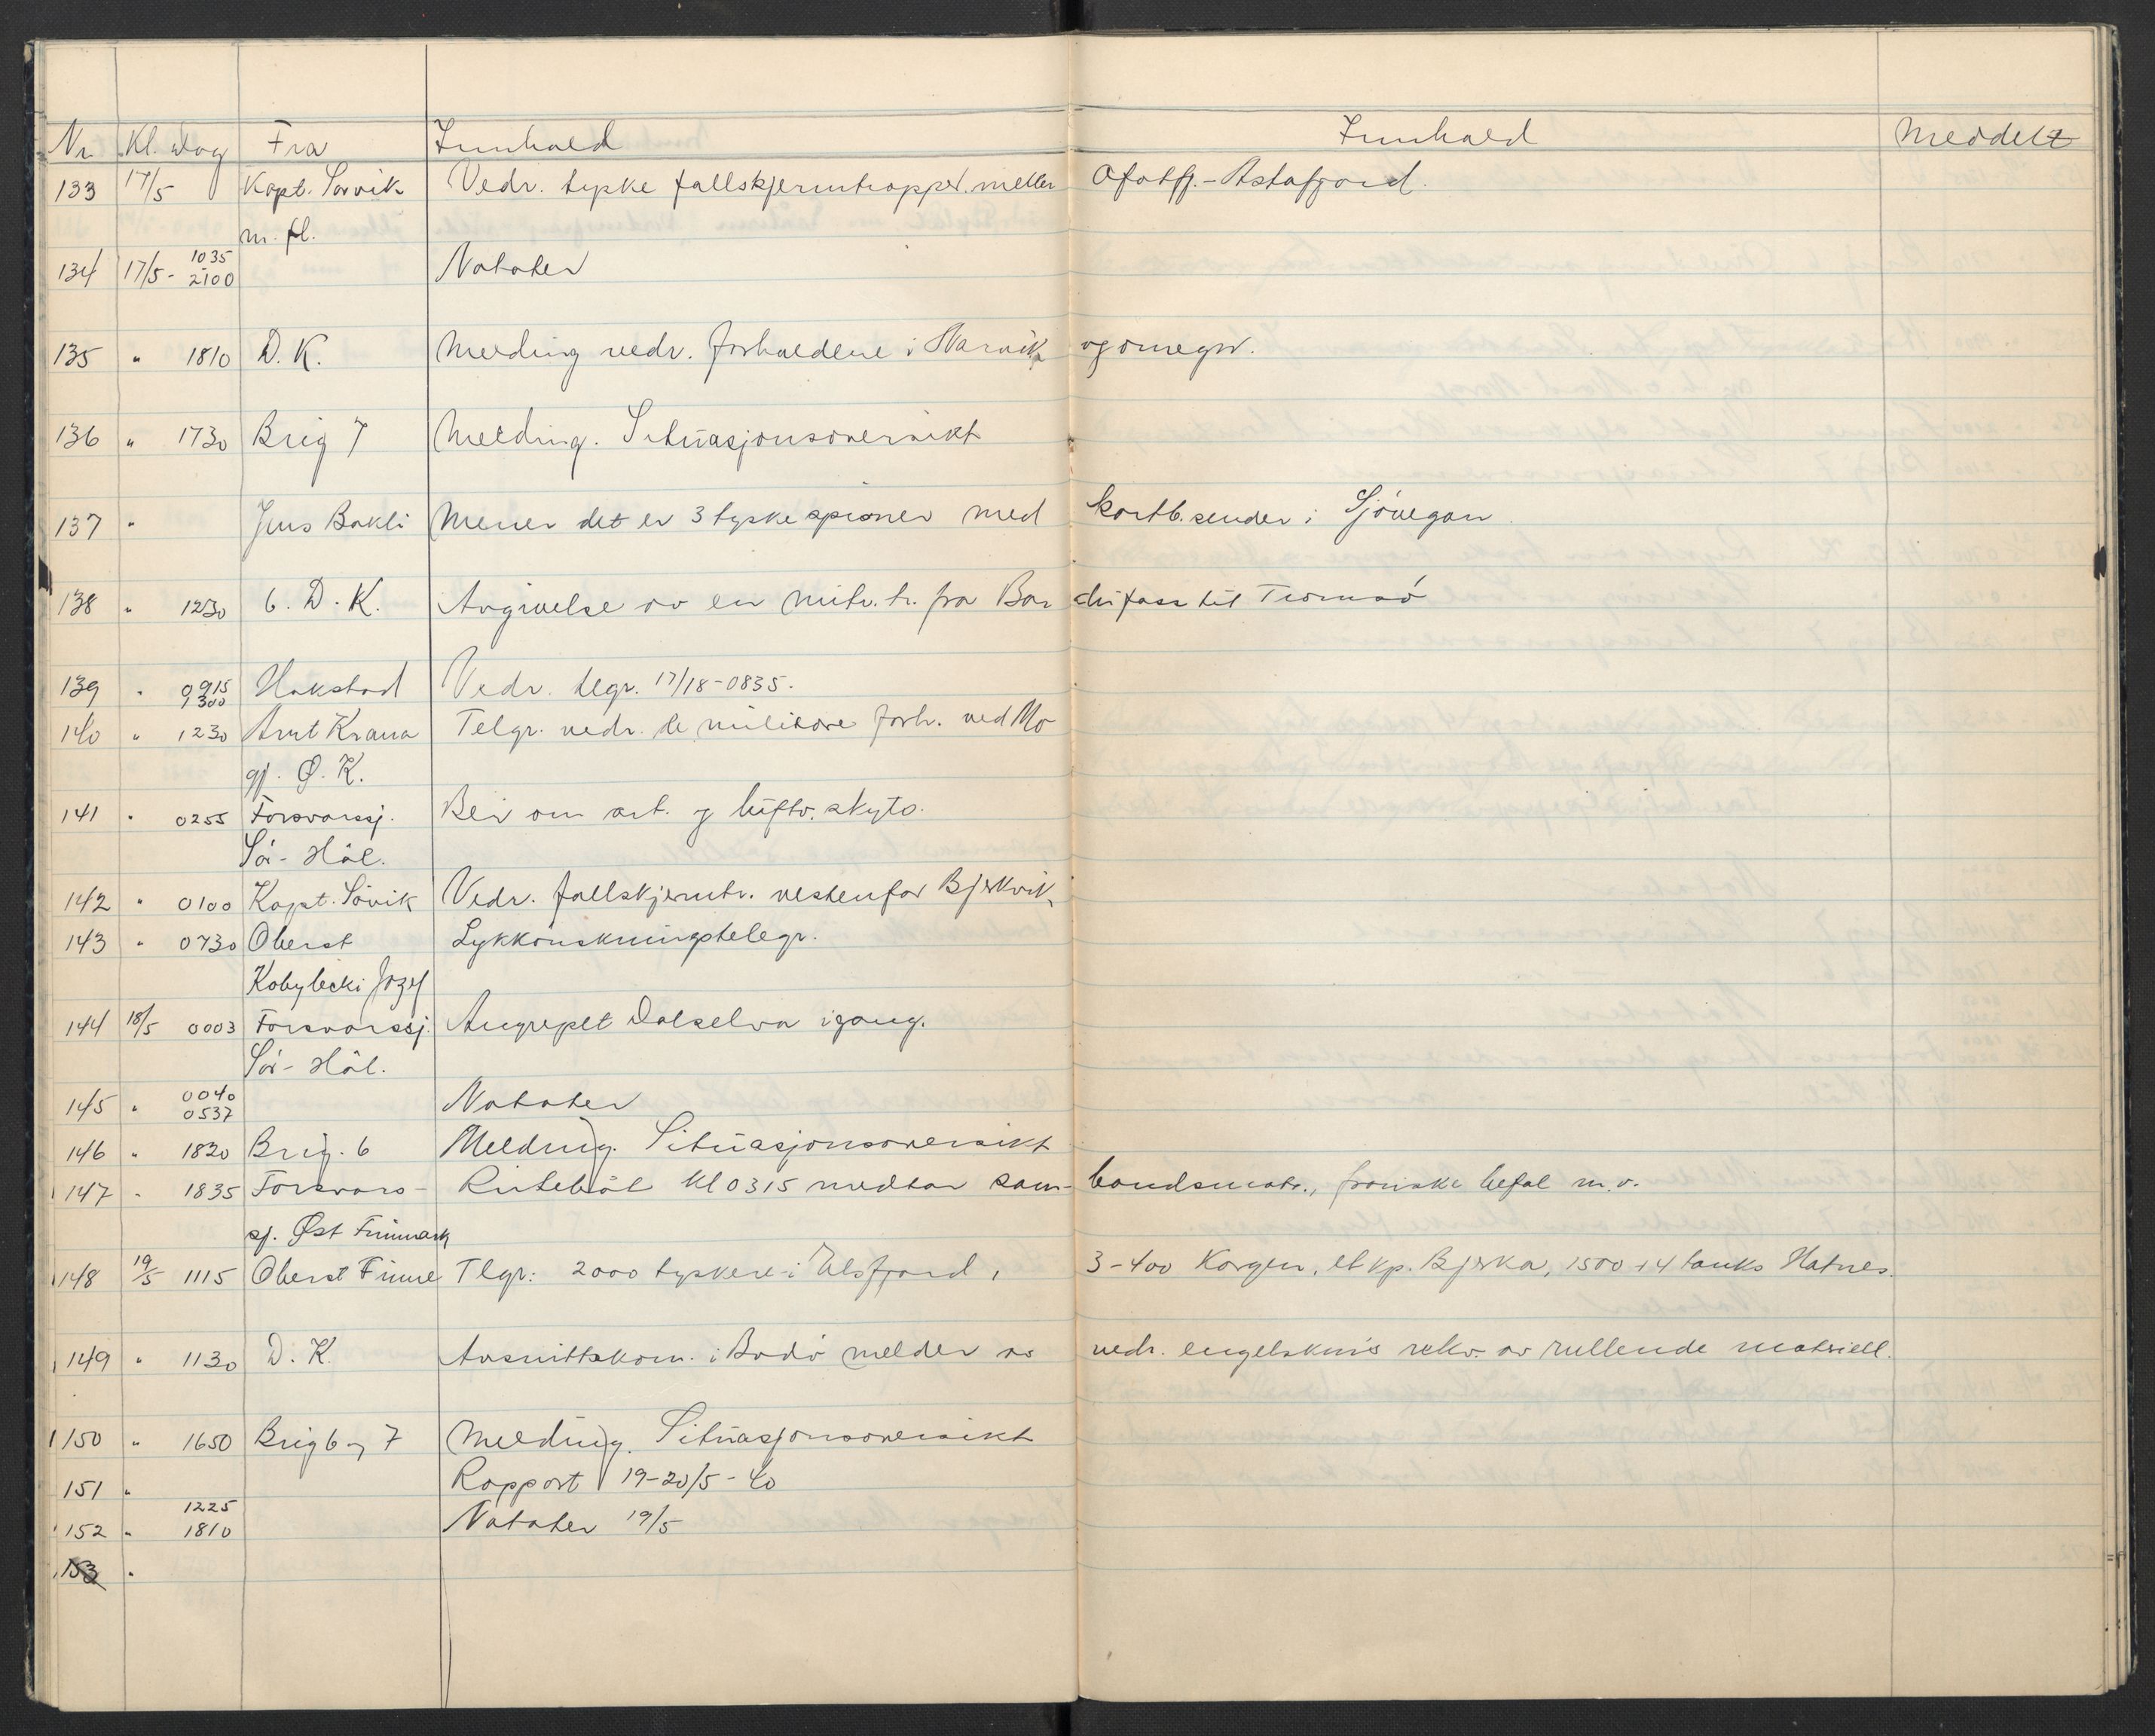 Nr. Kl. Dag Fra Innhold Innhold Meddelt
133 17/5 Kapt. Sørvik Vedr. tyske fallskjermtropper mellem Ofotfj.-Astafjord.
m. fl.
134 17/5 - 1035 - 2100 Notater
135 " 1810 D.K. Melding vedr. forholdene i Narvik og omegn.
136 " 1730 Brig 7 Melding. Situasjonsoversikt
137 " Jens Bakli Mener det er 3 tyske spioner med kortb.sender i Sjövegan
138 " 1230 6. D. K. Avgivelse av en mitr. tr. fra Bardufoss til Tromsö
139 " 0915 1300 Hakstad Vedr. tlegr. 17/18-0835.
140 " 1230 Arnt Krana Telgr. vedr. de militære forh. ved Mo
gj. Ø. K.
141 " 0255 Forsvarssj. Ber om art. og luftv. skyts.
Sör-Hål.
142 " 0100 Kapt. Sövik Vedr. fallskjermtr. vestenfor Bjerkvik.
143 " 0730 Oberst Lykkönskningstelegr.
Kobylecki Jozef
144 18/5 0003 Forsvarssj. Angrepet Dalselva igang.
Sör-Hål.
145 " 0040 0537 Notater
146 " 1820 Brig. 6 Melding. Situasjonsoversikt
147 " 1835 Forsvars- Rutebåt kl 0315 medtar sam- bandsmatr., franske befal m.v.
sj. Øst Finnmark
148 19/5 1115 Oberst Finne Tlgr: 2000 tyskere i Elsfjord, 3-400 Korgen, et kp. Bjerka, 1500 + 4 tanks Hatnes.
149 " 1130 D. K. Avsnittskom. i Bodö melder av vedr. engelskm's rekv. av rullende materiell.
150 " 1650 Brig 6 og 7 Melding. Situasjonsoversikt
151 " Rapport 19-20/5-40
152 " 1225 1810 Notater 19/5
153 "